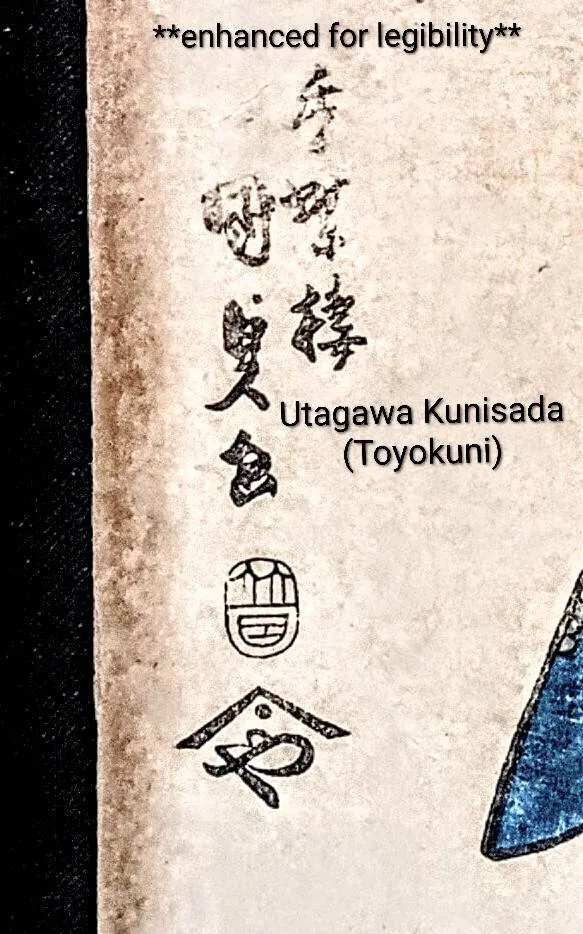 **enhanced for legibility**
香蝶楼
國貞画
Utagawa Kunisada
(Toyokuni)
や